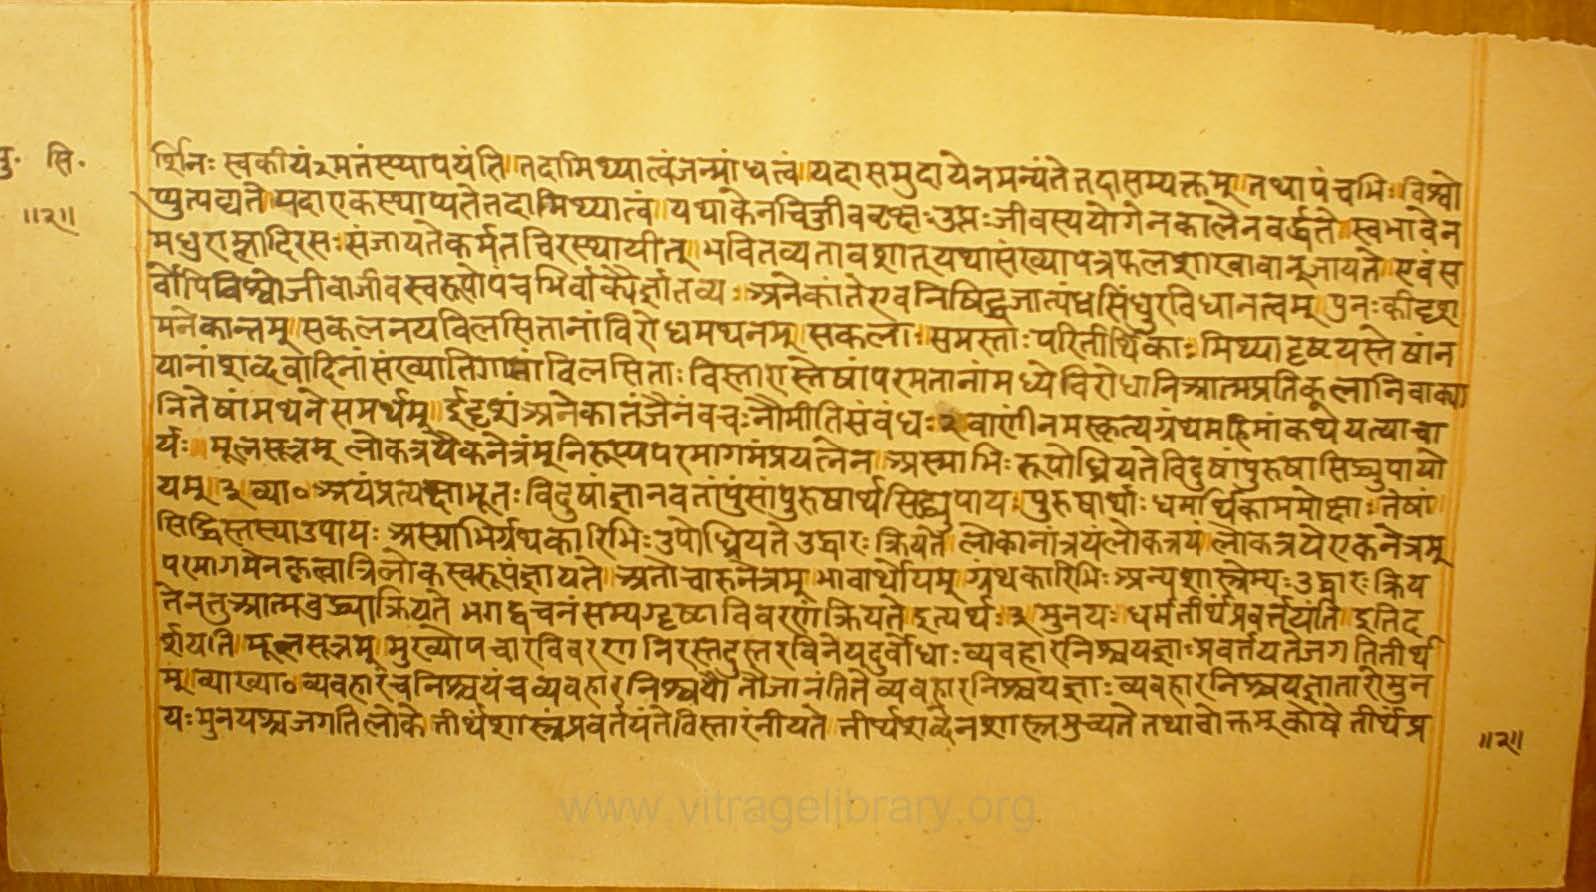 पु. सि.
॥२॥
र्शिनः स्वकीयं२मतंस्थापयंति तदामिथ्यात्वंजन्मांधत्वं यदासमुदायेनमन्यंतेतदासम्यक्तम् तथापंचभिः विश्वो
प्युत्पद्यते यदाएकस्थाप्यतेतदामिथ्यात्वं यथाकेनचिज्जीववृक्षः उप्तः जीवस्ययोगेनकालेनवर्द्धते स्वभावेन
मधुराम्लादिरसः संजायतेकर्मतचिरस्थायीत् भवितव्यतावशात्यथासंख्यापत्रफलशाखावान्जायते एवंस
र्वोपिविश्वोजीवाजीवस्वरूपोपंचभिर्वाक्यैर्ज्ञातव्य अनेकांतेएवनिषिद्धजात्यंधसिंधुरविधानत्वम् पुनःकीदृश
मनेकान्तम् सकलनयविलसितानांविरोधमथनम् सकलाः समस्ताः परितीर्थिकाः मिथ्यादृष्टयस्तेषांन
यानांशब्दवादिनांसंख्यातिगानांविलसिताः विस्तारास्तेषांपरमतानांमध्येविरोधानिआत्मप्रतिकूलानिवाक्या
नितेषांमथनेसमर्थम् ईदृशंअनेकातंजैनंवचःनौमीतिसंबंधः२वाणींनमस्कृत्यग्रंथमहिमांकथयत्याचा
र्यः मूलसूत्रम् लोकत्रयैकनेत्रंम्निरूप्यपरमागमंप्रयत्नेन अस्माभिः रूपोध्रियतेविदुषांपुरुषार्थसिद्ध्युपायो
यम् ३ व्या० अयंप्रत्यक्षाभूतः विदुषांज्ञानवतांपुंसांपुरुषार्थसिद्ध्युपायः पुरुषार्थाः धर्मार्थकाममोक्षाः तेषां
सिद्धिस्तस्याउपायः अस्माभिर्ग्रंथकारिभिः उपोध्रियते उद्धारः क्रियते लोकानांत्रयंलोकत्रयं लोकत्रयेएकनेत्रम्
परमागमेनकृत्वात्रिलोकस्वरूपंज्ञायते अतोचारुनेत्रम् भावार्थोयम् ग्रंथकारिभिः अन्यशास्त्रेभ्यः उद्धारः क्रिय
तेनतुआत्मबुद्ध्याक्रियते भगद्वचनंसम्यग्दृष्टाविवरणंक्रियतेइत्यर्थः ३ मुनयः धर्मतीर्थंप्रवर्त्तयंति इतिद
र्शयति मूलसूत्रम् मुख्योपचारविवरणनिरस्तदुस्तरविनेयदुर्बोधाः व्यवहारनिश्चयज्ञाः प्रवर्तयतेजगतितीर्थ
म् व्याख्या० व्यवहारंचनिश्चयंचव्यवहारनिश्चयौ तौजानंतितेव्यवहारनिश्चयज्ञाः व्यवहारनिश्चयज्ञातारोमुन
यः मुनयश्चजगतिलोके तीर्थशास्त्रंप्रवर्तयंतेविस्तारंनीयते तीर्थशब्देनशास्त्रमुच्यते तथाचोक्तम्कोषे तीर्थंप्र
॥२॥
www.vitragelibrary.org